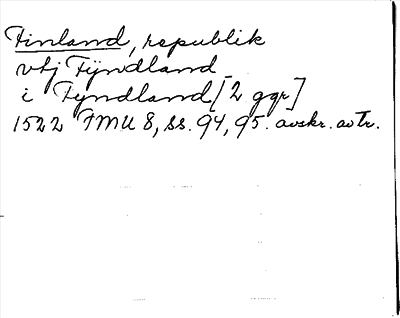 Finland, republik
vtj Fÿndland
i Fyndland [2 ggr]
1522 FMU 8, ss. 94, 95. avskr. avtr.